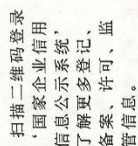 扫描二维码登录
‘国家企业信用
信息公示系统’
了解更多登记、
备案、许可、监
管信息。